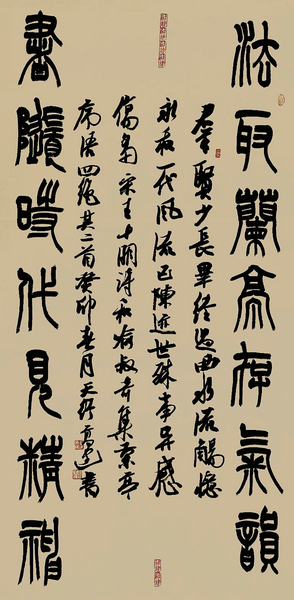 法取蘭亭存氣韻
群賢少長畢經過曲水流觴憶
永和一代風流已陳迹世殊事異感
傷多宋王十朋詩和喻叔奇集蘭亭
序語四絕其二首癸卯春月天行書
書隨時代見精神